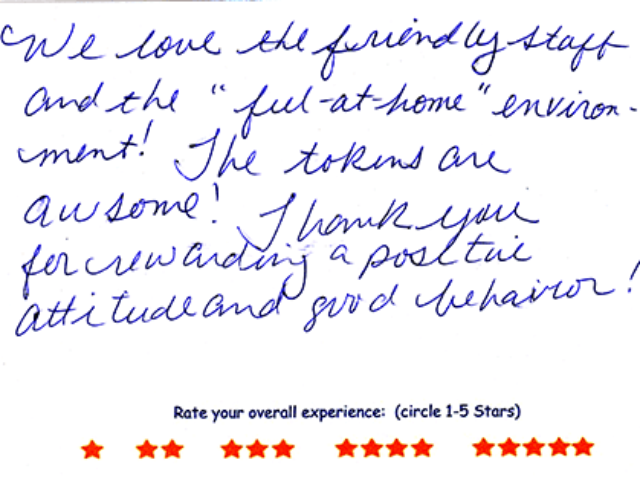 We love the friendly staff
and the "feel-at-home" environ-
ment! The tokens are
awsome! Thank you
for rewarding a positive
attitude and good behavior!
Rate your overall experience: (circle 1-5 Stars)